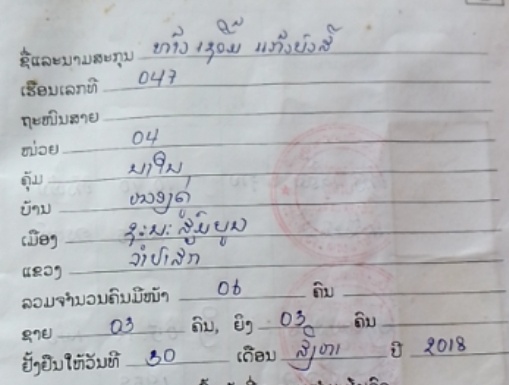 ຊື່ແລະນາມສະກຸນ ທ້າວ
ເຮືອນເລກທີ 047
ຖະໜົນສາຍ
ໜ່ວຍ 04
ຄຸ້ມ ນາໃນ
ບ້ານ
ເມືອງ ຊະນະສົມບູນ
ແຂວງ ຈໍາປາສັກ
ລວມຈໍານວນຄົນມີໜ້າ 06 ຄົນ
ຊາຍ 03 ຄົນ, ຍິງ 03 ຄົນ
ຢັ້ງຢືນໃຫ້ວັນທີ 30 ເດືອນ ສິງຫາ ປີ 2018